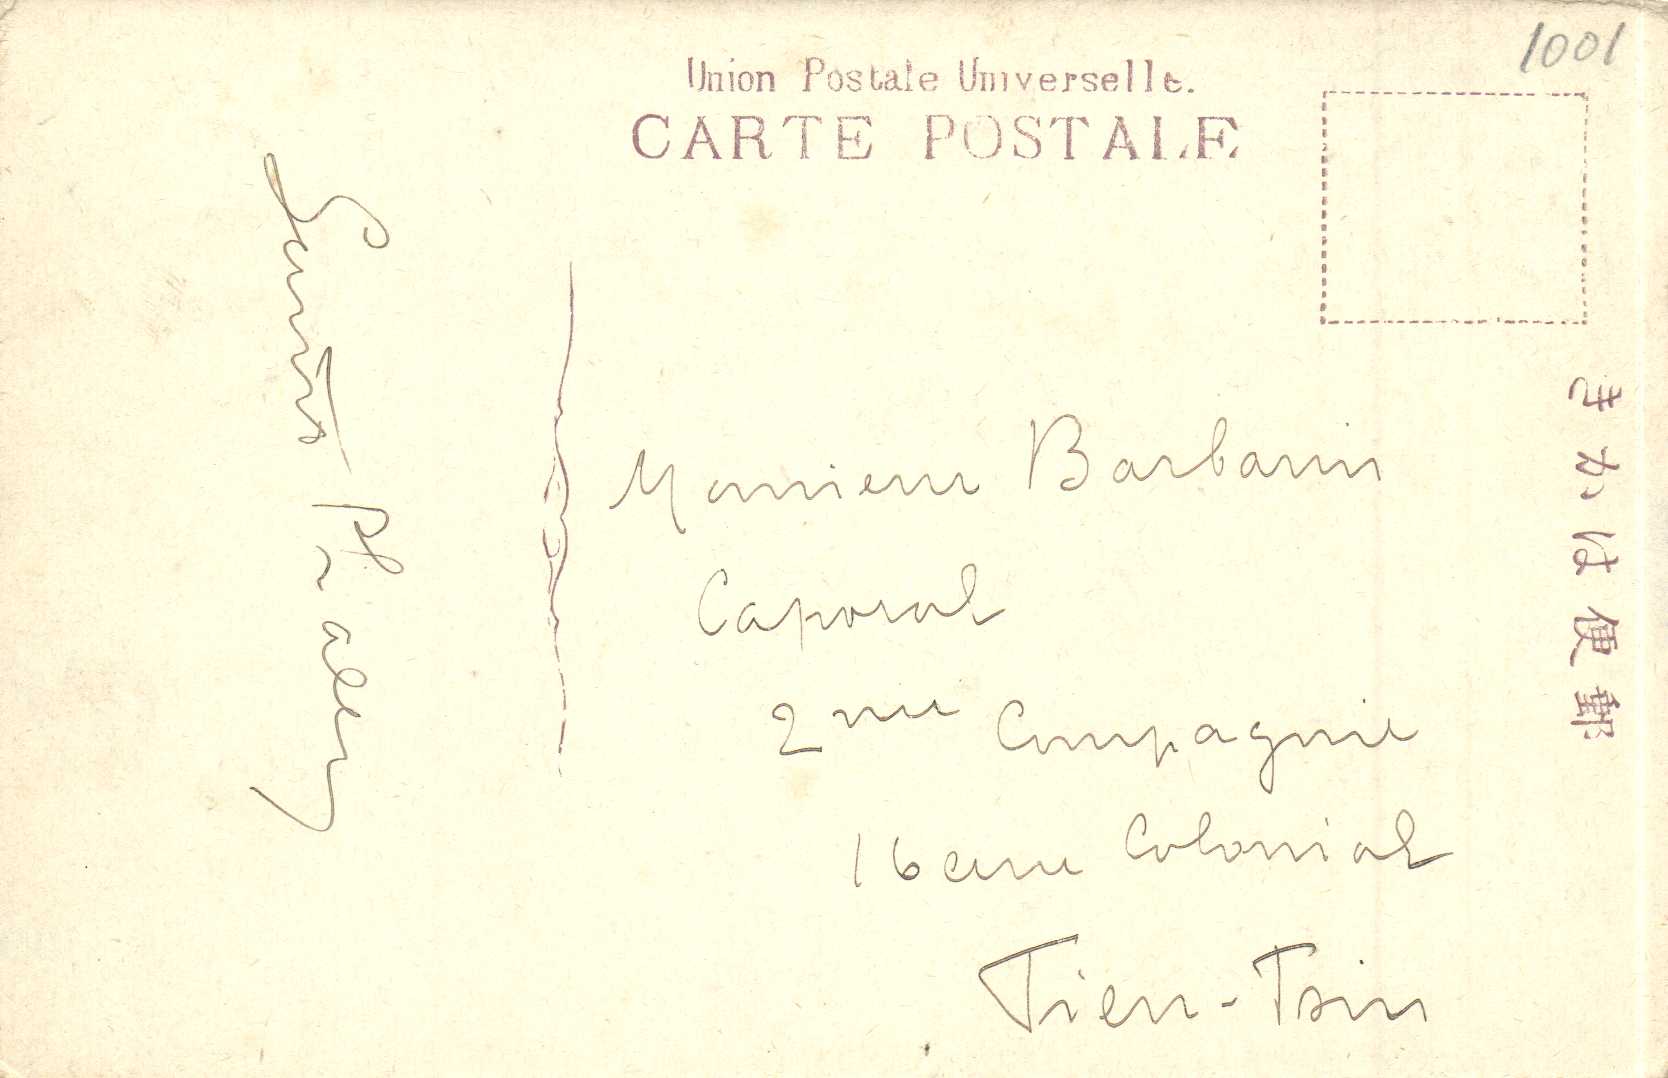 1001
Union Postale Universelle.
CARTE POSTALE
きかは便郵
Monsieur Barbarin
Caporal
2me Compagnie
16eme Colonial
Tien-Tsin